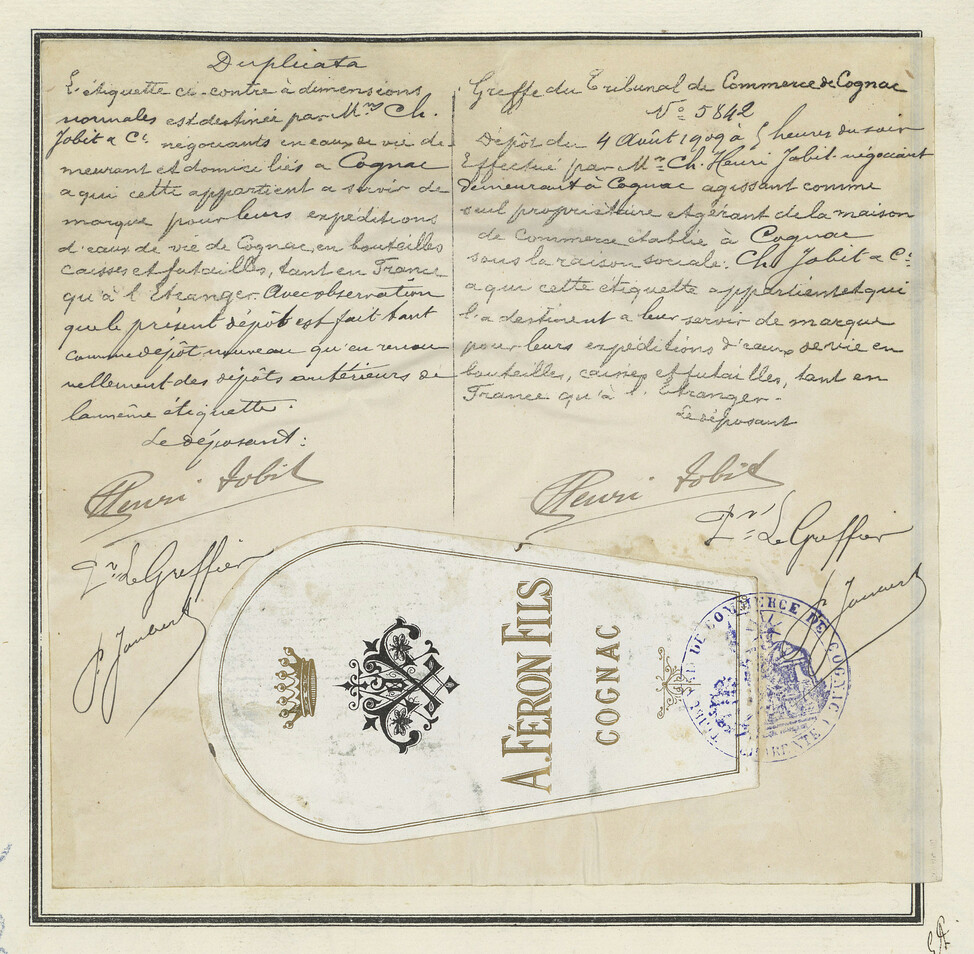 Duplicata
L'étiquette ci-contre à dimensions
normales est destinée par Mrs Ch.
Jobit & Cie négociants en eaux de vie de-
meurant et domiciliés à Cognac
a qui cette appartient a servir de
marque pour leurs expéditions
d'eaux de vie de Cognac, en bouteilles
caisses et futailles, tant en France
qu'à l'Etranger. Avec observation
que le présent dépôt est fait tant
comme dépôt nouveau qu'en renou
vellement des dépôts antérieurs de
la même étiquette.
Le déposant:
Henri Jobit
Pr Le Greffier
P. Jambert
Greffe du Tribunal de Commerce de Cognac
No 5842
Dépôt du 4 Août 1909 à 5 heures du soir
Effectué par Mr Ch. Henri Jobit négociant
demeurant à Cognac agissant comme
seul propriétaire et gérant de la maison
de Commerce établie à Cognac
sous la raison sociale. Ch. Jobit & Cie
a qui cette étiquette appartient et qui
l'a destinent a leur servir de marque
pour leurs expéditions d'eaux de vie en
bouteilles, caisses et futailles, tant en
France qu'à l'Etranger.
Le déposant
Henri Jobit
Pr Le Greffier
P. Jambert
A. FÉRON FILS
COGNAC
TRIBUNAL DE COMMERCE DE COGNAC
CHARENTE